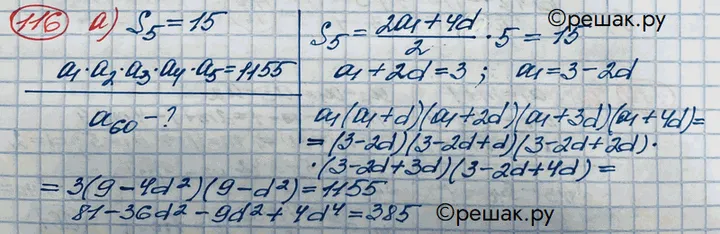 116 а) S₅=15
a₁·a₂·a₃·a₄·a₅=1155
a₆₀-?
S₅=(2a₁+4d)/2·5=15
a₁+2d=3; a₁=3-2d
a₁(a₁+d)(a₁+2d)(a₁+3d)(a₁+4d)=
=(3-2d)(3-2d+d)(3-2d+2d)·
·(3-2d+3d)(3-2d+4d)=
=3(9-4d²)(9-d²)=1155
81-36d²-9d²+4d⁴=385
©решак.ру
©решак.ру